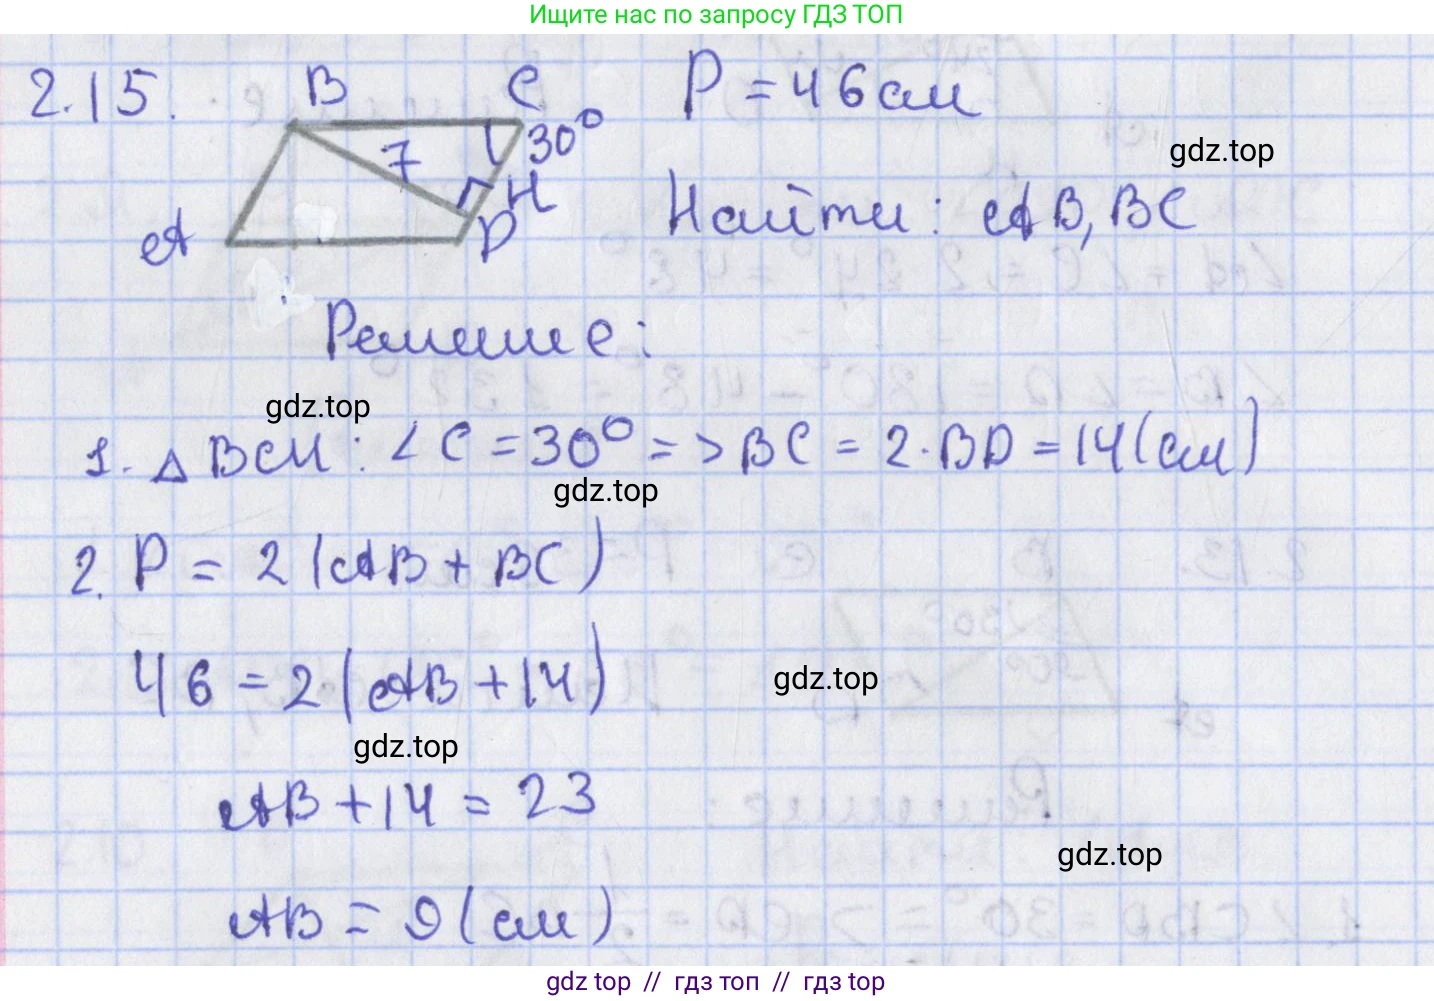 Ищите нас по запросу ГДЗ ТОП
2.15. B C P = 46 см
30°
7
gdz.top
H
A D Найти: AB, BC
Решение:
gdz.top
1. △ BCH: ∠C = 30° => BC = 2·BD = 14 (см)
gdz.top
2. P = 2 (AB + BC)
46 = 2 (AB + 14)
gdz.top
gdz.top
AB + 14 = 23
gdz.top
AB = 9 (см)
gdz top // гдз топ // гдз top